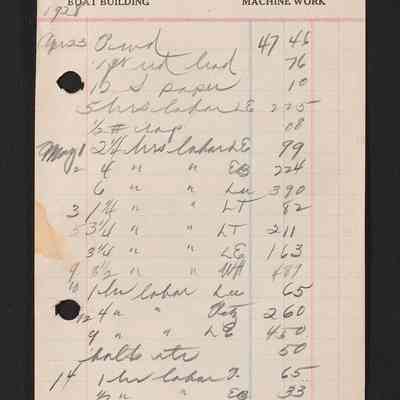 BOAT BUILDING MACHINE WORK
1928
Apr 23 Owed 47 46
1 pt red lead 76
12 S paper 10
5 hrs labor LE 225
1/2 # rap 08
May 1 2 1/4 hrs labor LE 99
2 4 " " EB 224
6 " " Lee 390
3 1 1/4 " " LT 82
5 3 1/4 " " LT 211
3 3/4 " " LE 163
9 3 1/2 " " WH
10 1 hr labor Lee 65
12 4 " " 260
9 " " LE 450
bolts etc 50
14 1 hr labor 65
1/2 " EB 33